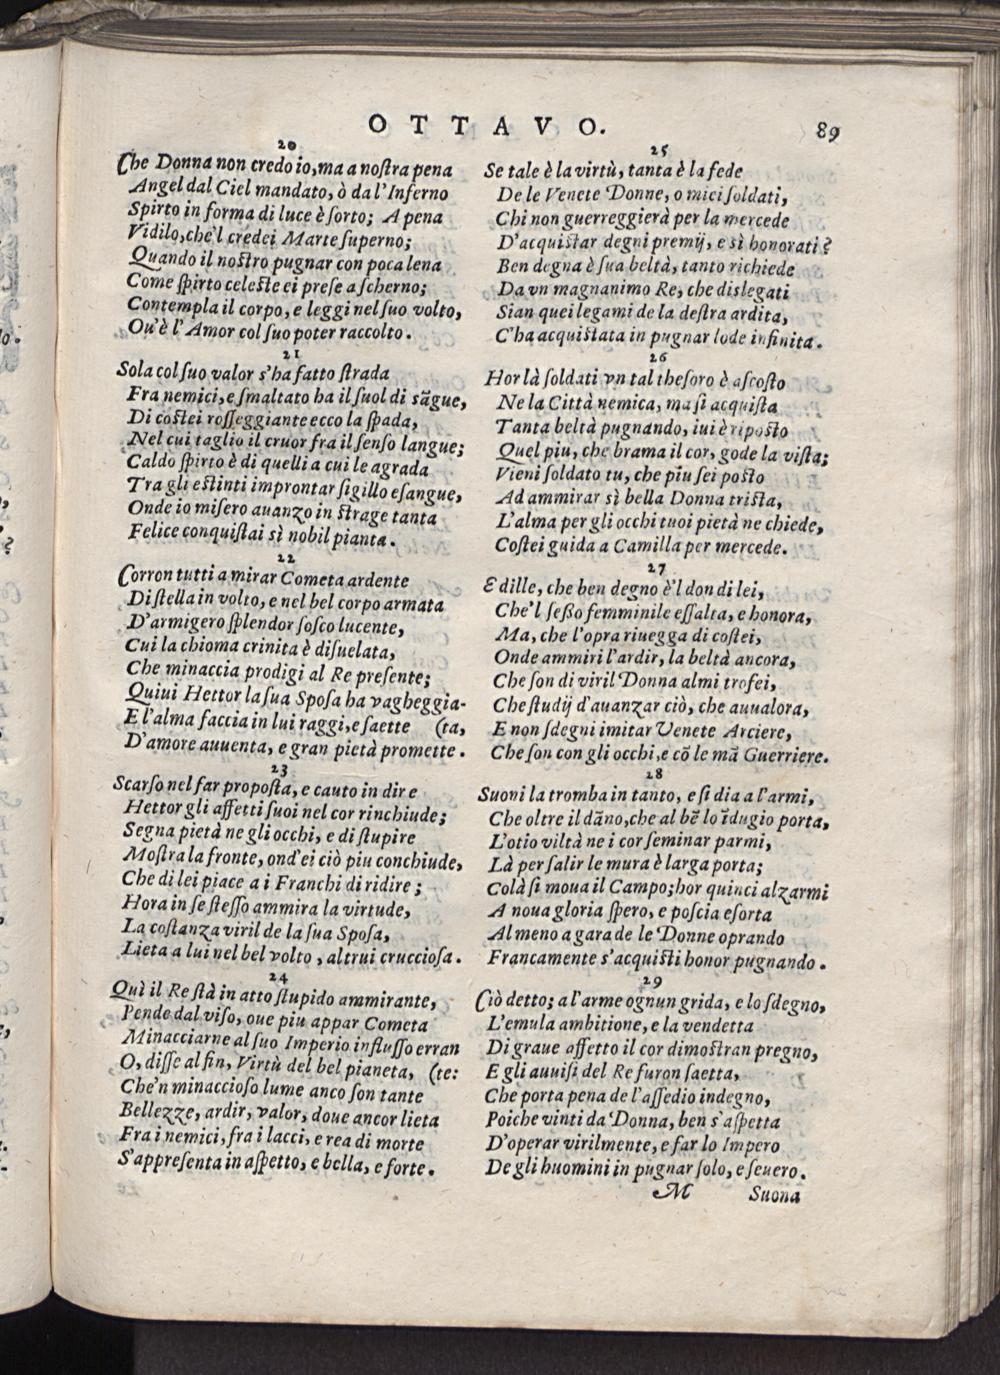 OTTAVO. 89
20
Che Donna non credo io, ma a noſtra pena
Angel dal Ciel mandato, ò da l'Inferno
Spirto in forma di luce è ſorto; A pena
Vidilo, che'l credei Marte ſuperno;
Quando il noſtro pugnar con poca lena
Come ſpirto celeſte ei preſe a ſcherno;
Contempla il corpo, e leggi nel ſuo volto,
Ou'è l'Amor col ſuo poter raccolto.
21
Sola col ſuo valor s'ha fatto ſtrada
Fra nemici, e ſmaltato ha il ſuol di sāgue,
Di coſtei roſſeggiante ecco la ſpada,
Nel cui taglio il cruor fra il ſenſo langue;
Caldo ſpirto è di quelli a cui le agrada
Tra gli eſtinti improntar ſigillo eſangue,
Onde io miſero auanzo in ſtrage tanta
Felice conquiſtai sì nobil pianta.
22
Corron tutti a mirar Cometa ardente
Di ſtella in volto, e nel bel corpo armata
D'armigero ſplendor foſco lucente,
Cui la chioma crinita è diſuelata,
Che minaccia prodigi al Re preſente;
Quiui Hettor la ſua Spoſa ha vagheggia-
E l'alma faccia in lui raggi, e ſaette (ta,
D'amore auuenta, e gran pietà promette.
23
Scarſo nel far propoſta, e cauto in dire
Hettor gli affetti ſuoi nel cor rinchiude;
Segna pietà ne gli occhi, e di ſtupire
Moſtra la fronte, ond'ei ciò piu conchiude,
Che di lei piace a i Franchi di ridire;
Hora in ſe ſteſſo ammira la virtude,
La coſtanza viril de la ſua Spoſa,
Lieta a lui nel bel volto, altrui crucciosa.
24
Quì il Re ſtà in atto ſtupido ammirante,
Pende dal viſo, oue piu appar Cometa
Minacciarne al ſuo Imperio influſſo erran
O, diſſe al fin, Virtù del bel pianeta, (te:
Che'n minaccioſo lume anco ſon tante
Bellezze, ardir, valor, doue ancor lieta
Fra i nemici, fra i lacci, e rea di morte
S'appreſenta in aſpetto, e bella, e forte.
25
Se tale è la virtù, tanta è la fede
De le Venete Donne, o miei ſoldati,
Chi non guerreggierà per la mercede
D'acquiſtar degni premij, e sì honorati?
Ben degna è ſua beltà, tanto richiede
Da vn magnanimo Re, che dislegati
Sian quei legami de la deſtra ardita,
C'ha acquiſtata in pugnar lode infinita.
26
Hor là ſoldati vn tal theſoro è aſcoſto
Ne la Città nemica, ma ſi acquiſta
Tanta beltà pugnando, iui è ripoſto
Quel piu, che brama il cor, gode la viſta;
Vieni ſoldato tu, che piu ſei poſto
Ad ammirar sì bella Donna triſta,
L'alma per gli occhi tuoi pietà ne chiede,
Coſtei guida a Camilla per mercede.
27
E dille, che ben degno è'l don di lei,
Che'l ſeßo femminile eſſalta, e honora,
Ma, che l'opra riuegga di coſtei,
Onde ammiri l'ardir, la beltà ancora,
Che ſon di viril Donna almi trofei,
Che ſtudij d'auanzar ciò, che auualora,
E non ſdegni imitar Venete Arciere,
Che ſon con gli occhi, e cō le mā Guerriere.
28
Suoni la tromba in tanto, e ſi dia a l'armi,
Che oltre il dāno, che al bē lo īdugio porta,
L'otio viltà ne i cor ſeminar parmi,
Là per ſalir le mura è larga porta;
Colà ſi moua il Campo; hor quinci alzarmi
A noua gloria ſpero, e poſcia eſorta
Al meno a gara de le Donne oprando
Francamente s'acquiſti honor pugnando.
29
Ciò detto; a l'arme ognun grida, e lo ſdegno,
L'emula ambitione, e la vendetta
Di graue affetto il cor dimoſtran pregno,
E gli auuiſi del Re furon ſaetta,
Che porta pena de l'aſſedio indegno,
Poiche vinti da Donna, ben s'aſpetta
D'operar virilmente, e far lo Impero
De gli huomini in pugnar ſolo, e ſeuero.
M Suona